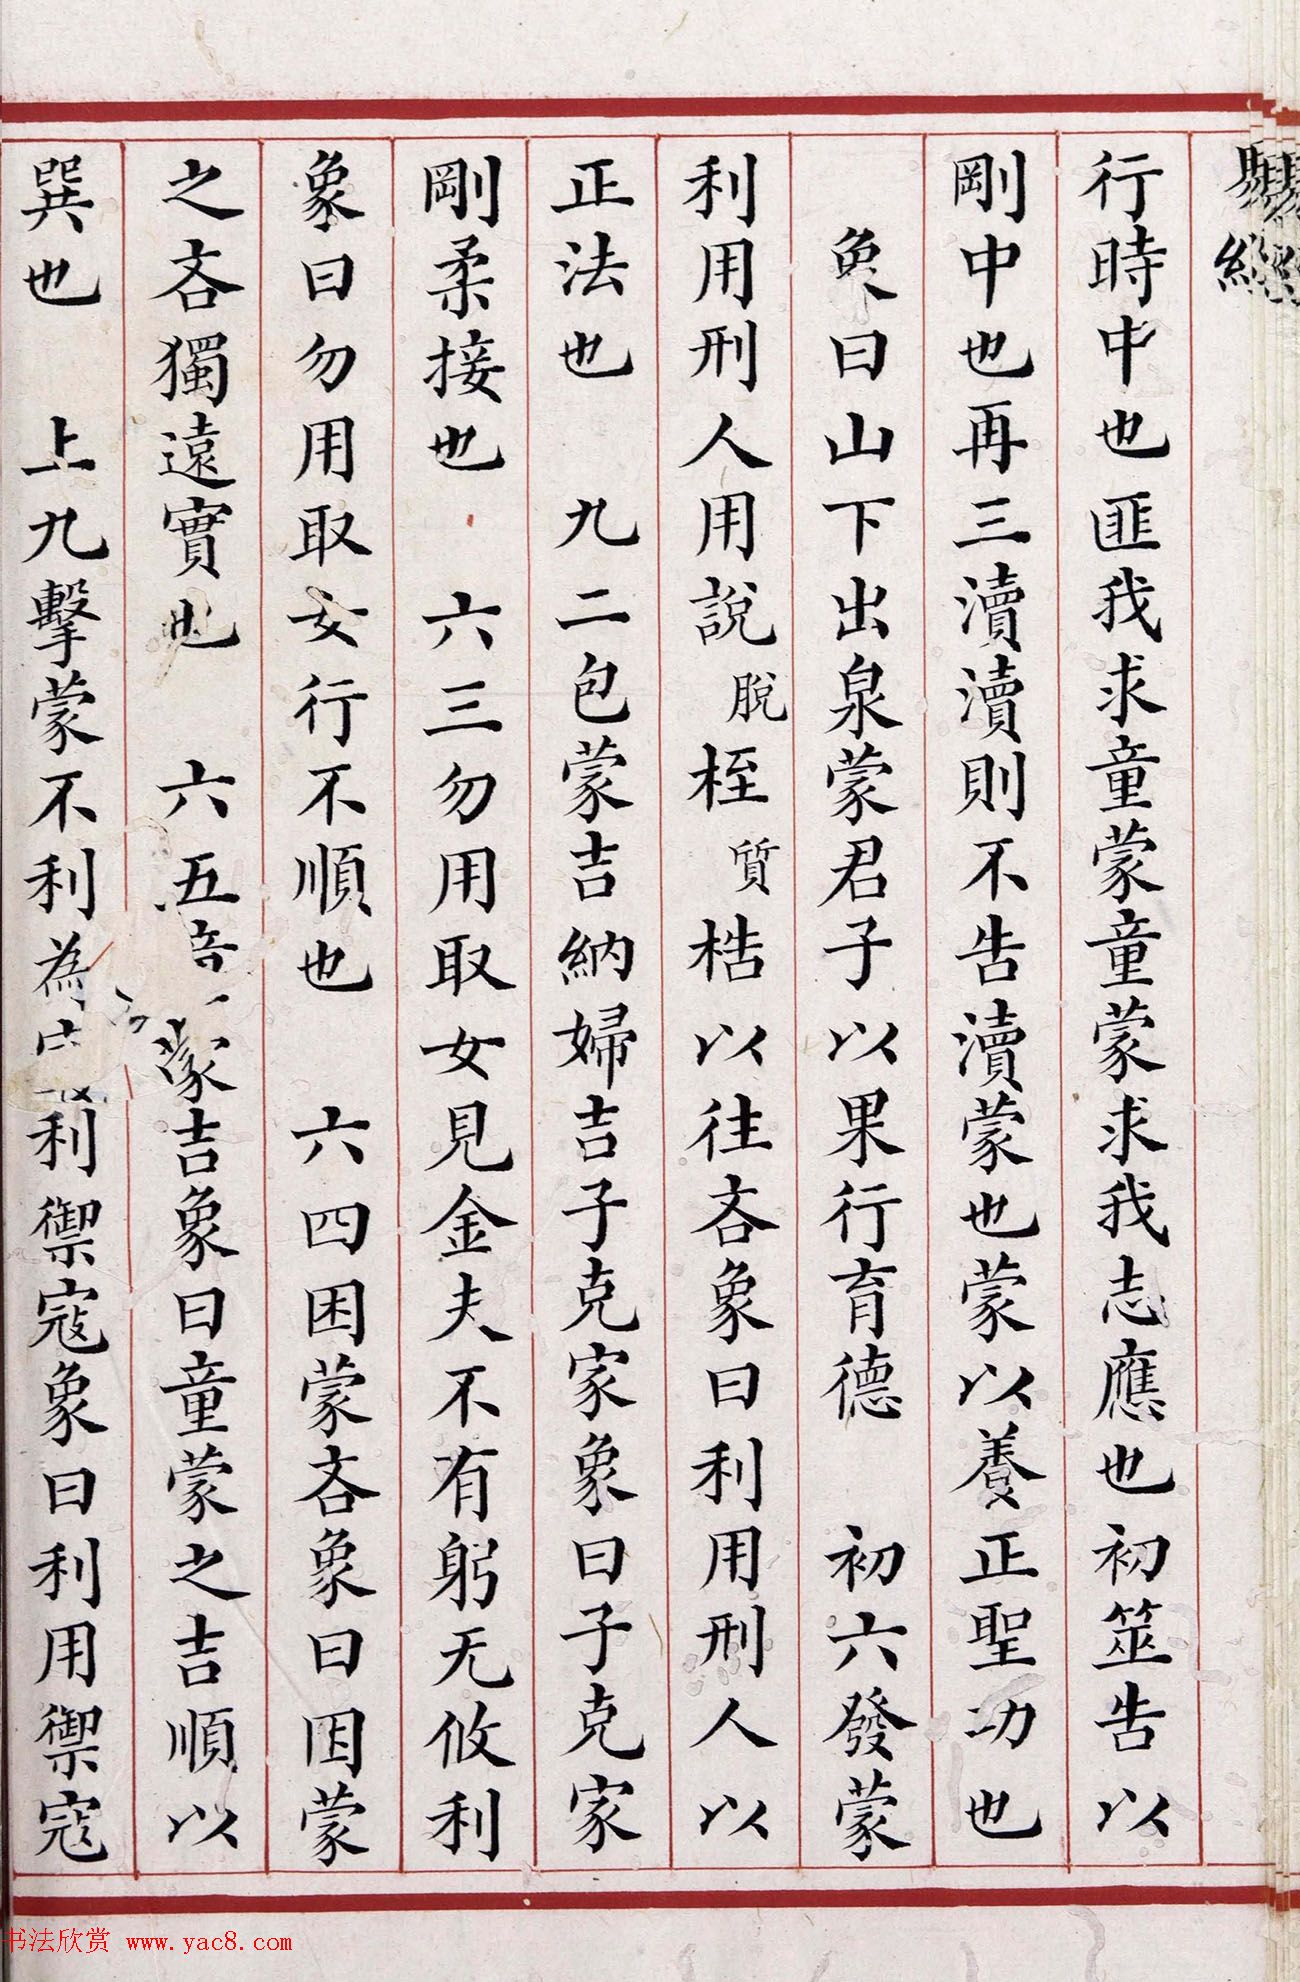 行時中也匪我求童蒙童蒙求我志應也初筮告以
剛中也再三瀆瀆則不告瀆蒙也蒙以養正聖功也
象曰山下出泉蒙君子以果行育德　初六發蒙
利用刑人用說脫桎質梏以往吝象曰利用刑人以
正法也　九二包蒙吉納婦吉子克家象曰子克家
剛柔接也　六三勿用取女見金夫不有躬无攸利
象曰勿用取女行不順也　六四困蒙吝象曰困蒙
之吝獨遠實也　六五童蒙吉象曰童蒙之吉順以
巽也　上九擊蒙不利為利禦寇象曰利用禦寇
书法欣赏 www.yac8.com